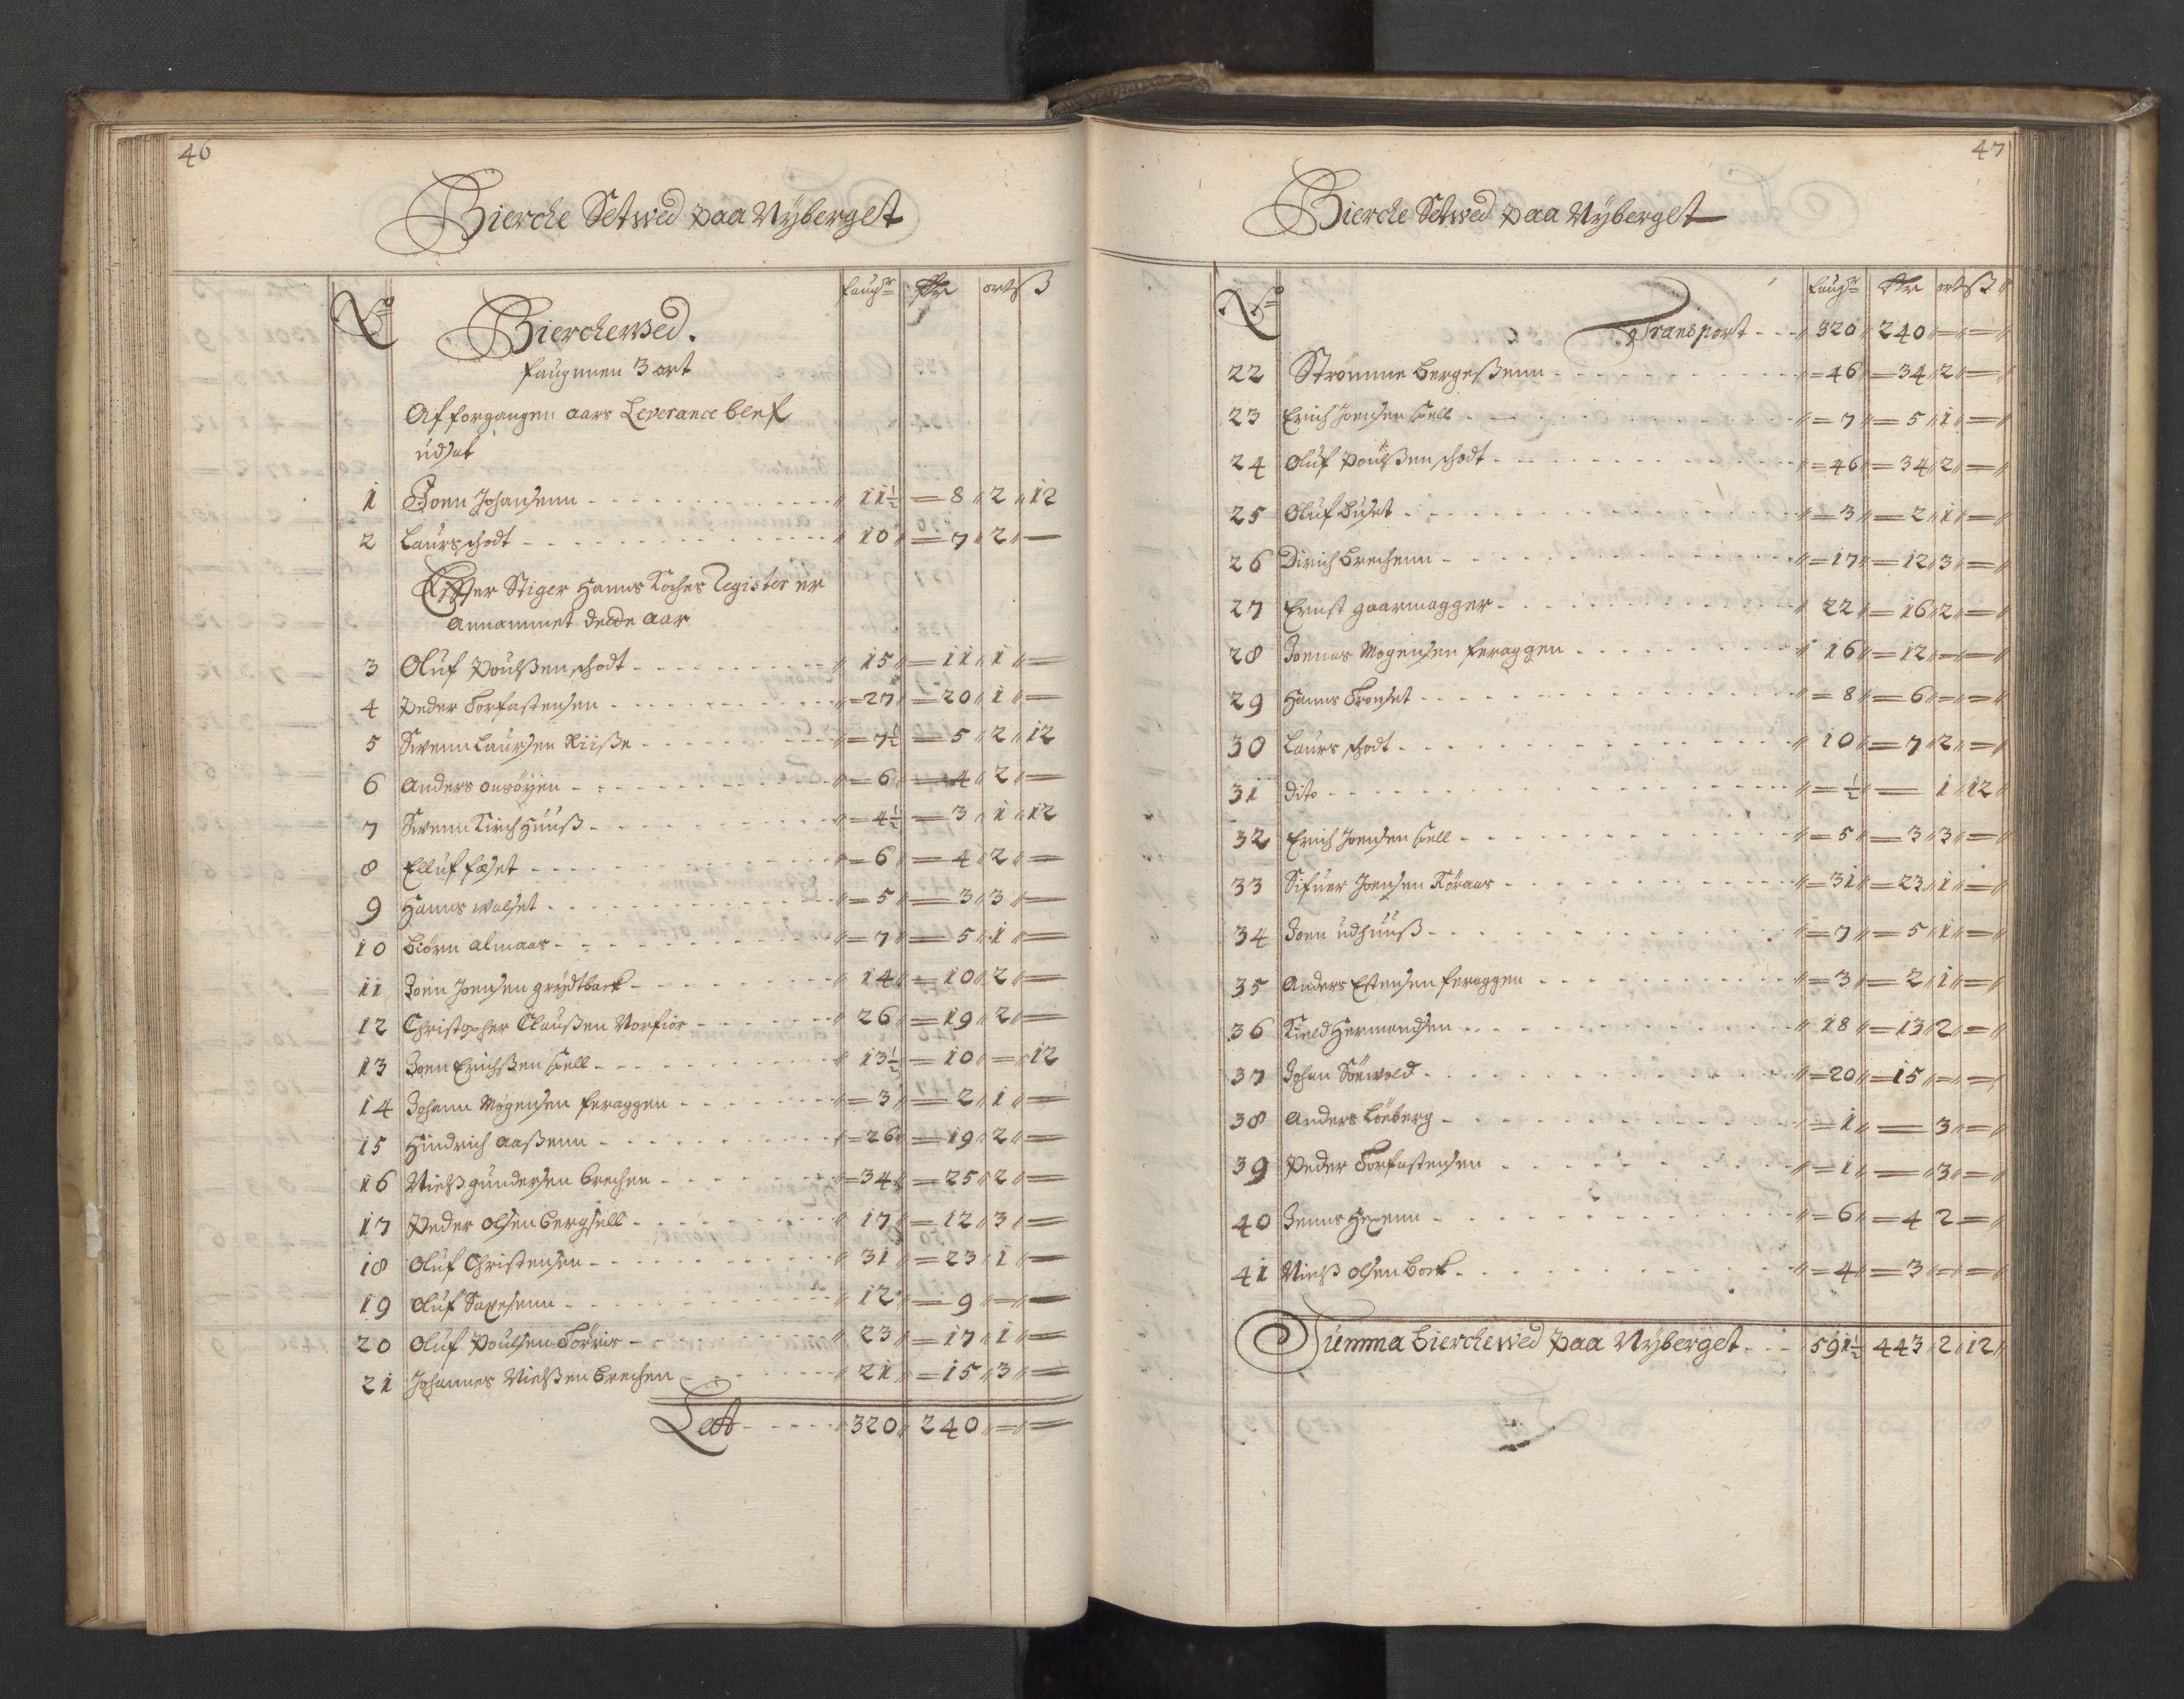 46
Bierche Setwed paa Nÿberget
No
faugr rdr ort ß
Bierchewed.
faugnnen 3 ort
Af forgangen aars Leverance blef
üdsat
1 Joen Johansenn 11½ 8 2 12
2 Laurs schodt 10 7 2 —
Efter Stiger Hanns Koches Register er
Annammet dette Aar
3 Oluf Poulßen schodt 15 11 1 —
4 Peder Torfastensen 27 20 1 —
5 Swenn Laursen Riiße 7½ 5 2 12
6 Anders onsöÿen 6 4 2 —
7 Swenn Kirch Hüüß 4½ 3 1 12
8 Elluf fæset 6 4 2 —
9 Hanns walset 5 3 3 —
10 Biörn almaas 7 5 1 —
11 Joen Joensen grÿdtback 14 10 2 —
12 Christopher Claußen Norfior 26 19 2 —
13 Joen Erichßen sell 13½ 10 — 12
14 Johann Mogensen feraggen 3 2 1 —
15 Hindrich aaßenn 26 19 2 —
16 Nielß gundersen brechen 34 25 2 —
17 Peder olsen bergsell 17 12 3 —
18 Oluf Christensen 31 23 1 —
19 Oluf Saxesenn 12 9 — —
20 Oluf Poulsen Törris 23 17 1 —
21 Johannes Nielßen brechen 21 15 3 —
Latt 320 240 — —
47
Bierche Setwed paa Nÿberget
No
faugr rdr ort ß
Transport 320 240 — —
22 Strömme Bergeßenn 46 34 2 —
23 Erich Joensen sell 7 5 1 —
24 Oluf Poulßen schodt 46 34 2 —
25 Oluf Buset 3 2 1 —
26 Dirich brechenn 17 12 3 —
27 Ernst gaarmagger 22 16 2 —
28 Joenas Mogensen feraggen 16 12 — —
29 Hanns Tronset 8 6 — —
30 Laurs schodt 10 7 2 —
31 dito ½ — 1 12
32 Erich Joensen sell 5 3 3 —
33 Sifuer Joensen Röraas 31 23 1 —
34 Joen üdhüüß 7 5 1 —
35 Anders Estensen feraggen 3 2 1 —
36 Kield Hermandsen 18 13 2 —
37 Johan Söewold 20 15 — —
38 Anders Löeberg 1 — 3 —
39 Peder Torfastensen 1 — 3 —
40 Jenns Hexenn 6 4 2 —
41 Nielß olsen Bock 4 3 — —
Summa Bierchewed paa Nÿberget 591½ 443 2 12